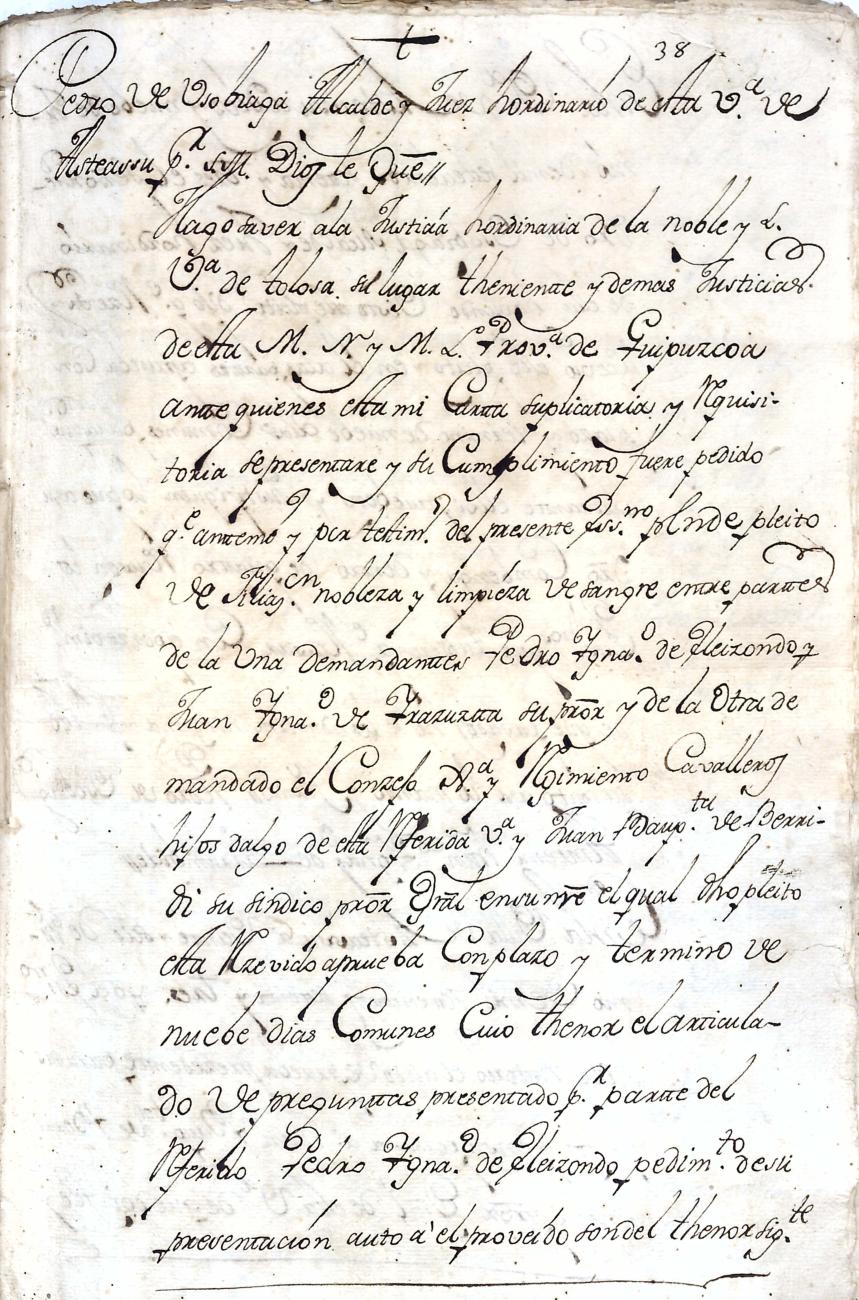 38
Pedro de Vsobiaga Alcalde y Juez hordinario de esta V.ª de
Asteassu p.r S.M. Dios le Gue //
Hago saver ala Justicia hordinaria de la noble y L.
V.ª de tolosa su lugar theniente y demas Justicias
de esta M. N. y M. L. Prov.ª de Guipuzcoa
ante quienes esta mi Cartta suplicatoria y Requisi-
toria se presentare y su Cumplimiento fuere pedido
q.e antte mi y por testim.º del presente Ess.no pende pleito
de filiaz.on nobleza y limpieza de sangre entre parttes
de la Vna demandanttes Pedro Ygna.º de Eleizondo y
Juan Ygna.º de Yrazuzta su pror y de la Otra de
mandado el Conzejo A.ª y Regimiento Cavalleros
hijos dalgo de esta Referida V.ª y Juan Baup.ta de Berri-
di su sindico pror Gral en su nre el qual dho pleito
esta Rezevido aprueba Con plazo y termino de
nuebe dias Comunes Cuio thenor el articula-
do de pregunttas presentado p.r partte del
Referido Pedro Ygna.º de Eleizondo pedim.to de su
presentación auto a el proveido son del thenor sig.te